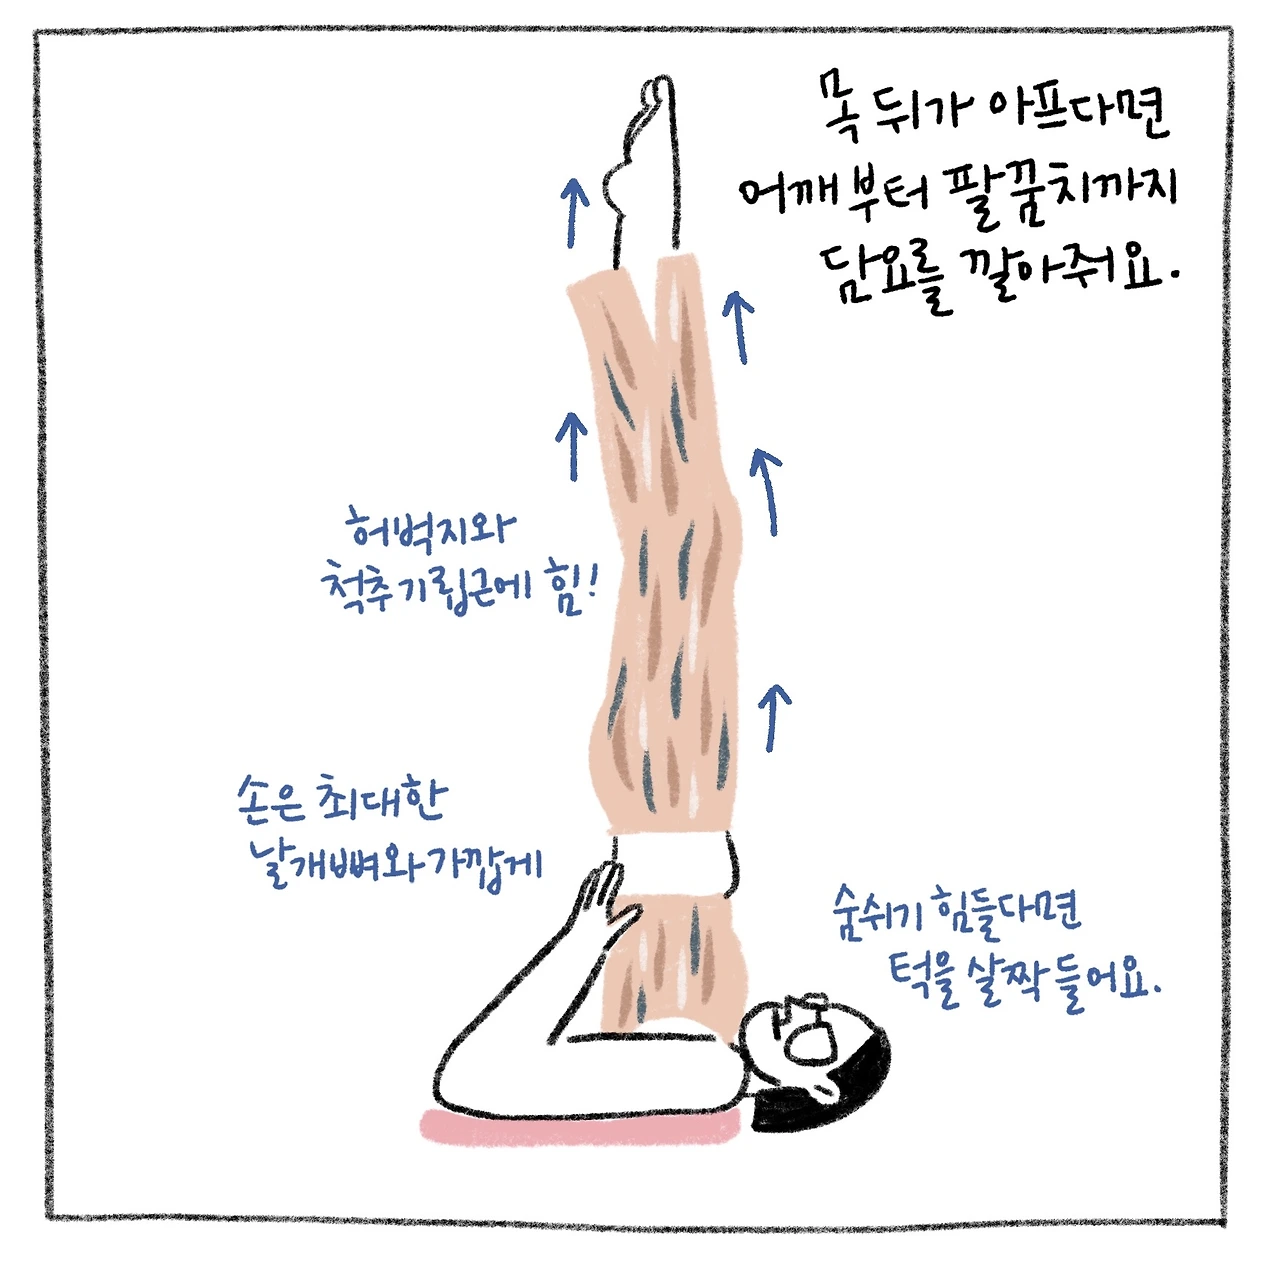 목 뒤가 아프다면
어깨부터 팔꿈치까지
담요를 깔아줘요.
허벅지와
척추기립근에 힘!
손은 최대한
날개뼈와 가깝게
숨쉬기 힘들다면
턱을 살짝 들어요.